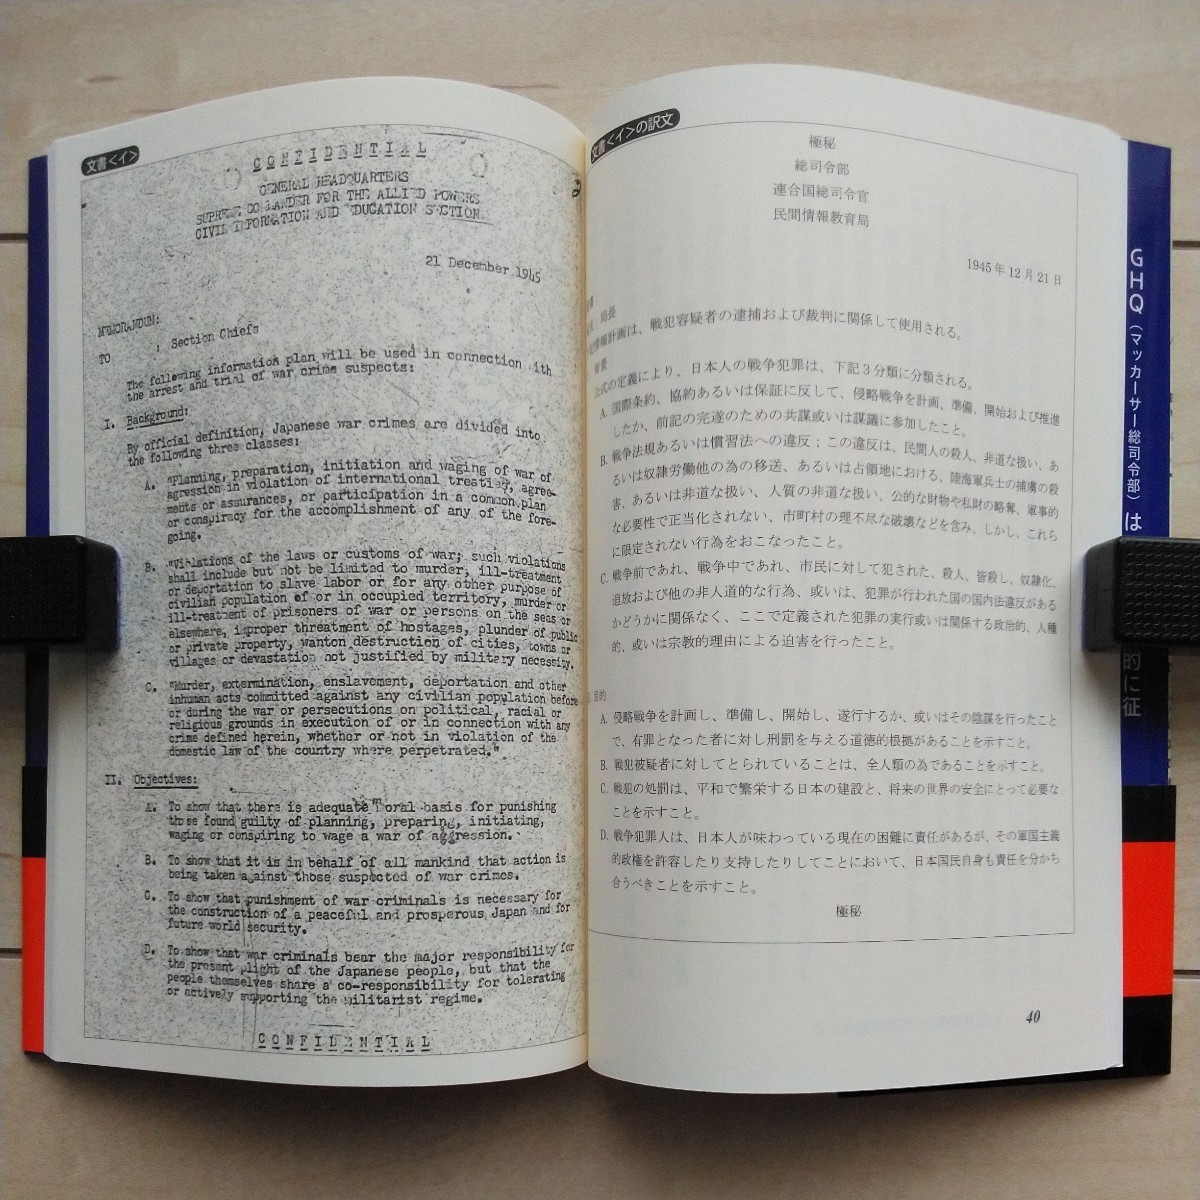 文書<イ>
CONFIDENTIAL
GENERAL HEADQUARTERS
SUPREME COMMANDER FOR THE ALLIED POWERS
CIVIL INFORMATION AND EDUCATION SECTION
21 December 1945
MEMORANDUM:
TO : Section Chiefs
The following information plan will be used in connection with
the arrest and trial of war crime suspects:
I. Background:
By official definition, Japanese war crimes are divided into
the following three classes:
A. "Planning, preparation, initiation and waging of war of
agression in violation of international treaties, agree-
ments or assurances, or participation in a common plan
or conspiracy for the accomplishment of any of the fore-
going.
B. "Violations of the laws or customs of war; such violations
shall include but not be limited to murder, ill-treatment
or deportation to slave labor or for any other purpose of
civilian population of or in occupied territory, murder or
ill-treatment of prisoners of war or persons on the seas or
elsewhere, improper threatment of hostages, plunder of public
or private property, wanton destruction of cities, towns or
villages or devastation not justified by military necessity.
C. "Murder, extermination, enslavement, deportation and other
inhuman acts committed against any civilian population before
or during the war or persecutions on political, racial or
religious grounds in execution of or in connection with any
crime defined herein, whether or not in violation of the
domestic law of the country where perpetrated."
II. Objectives:
A. To show that there is adequate moral basis for punishing
those found guilty of planning, preparing, initiating,
waging or conspiring to wage a war of aggression.
B. To show that it is in behalf of all mankind that action is
being taken against those suspected of war crimes.
C. To show that punishment of war criminals is necessary for
the construction of a peaceful and prosperous Japan and for
future world security.
D. To show that war criminals bear the major responsibility for
the present plight of the Japanese people, but that the
people themselves share a co-responsibility for tolerating
or actively supporting the militarist regime.
CONFIDENTIAL
文書<イ>の訳文
極秘
総司令部
連合国総司令官
民間情報教育局
1945年12月21日
局長
情報計画は、戦犯容疑者の逮捕および裁判に関係して使用される。
公式の定義により、日本人の戦争犯罪は、下記3分類に分類される。
A. 国際条約、協約あるいは保証に反して、侵略戦争を計画、準備、開始および推進
したか、前記の完遂のための共謀或いは謀議に参加したこと。
B. 戦争法規あるいは慣習法への違反;この違反は、民間人の殺人、非道な扱い、あ
るいは奴隷労働他の為の移送、あるいは占領地における、陸海軍兵士の捕虜の殺
害、あるいは非道な扱い、人質の非道な扱い、公的な財物や私財の略奪、軍事的
な必要性で正当化されない、市町村の理不尽な破壊などを含み、しかし、これら
に限定されない行為をおこなったこと。
C. 戦争前であれ、戦争中であれ、市民に対して犯された、殺人、皆殺し、奴隷化、
追放および他の非人道的な行為、或いは、犯罪が行われた国の国内法違反がある
かどうかに関係なく、ここで定義された犯罪の実行或いは関係する政治的、人種
的、或いは宗教的理由による迫害を行ったこと。
目的
A. 侵略戦争を計画し、準備し、開始し、遂行するか、或いはその陰謀を行ったこと
で、有罪となった者に対し刑罰を与える道徳的根拠があることを示すこと。
B. 戦犯被疑者に対してとられていることは、全人類の為であることを示すこと。
C. 戦犯の処罰は、平和で繁栄する日本の建設と、将来の世界の安全にとって必要な
ことを示すこと。
D. 戦争犯罪人は、日本人が味わっている現在の困難に責任があるが、その軍国主義
的政権を許容したり支持したりしてことにおいて、日本国民自身も責任を分かち
合うべきことを示すこと。
極秘
40
GHQ(マッカーサー総司令部)は
的に征